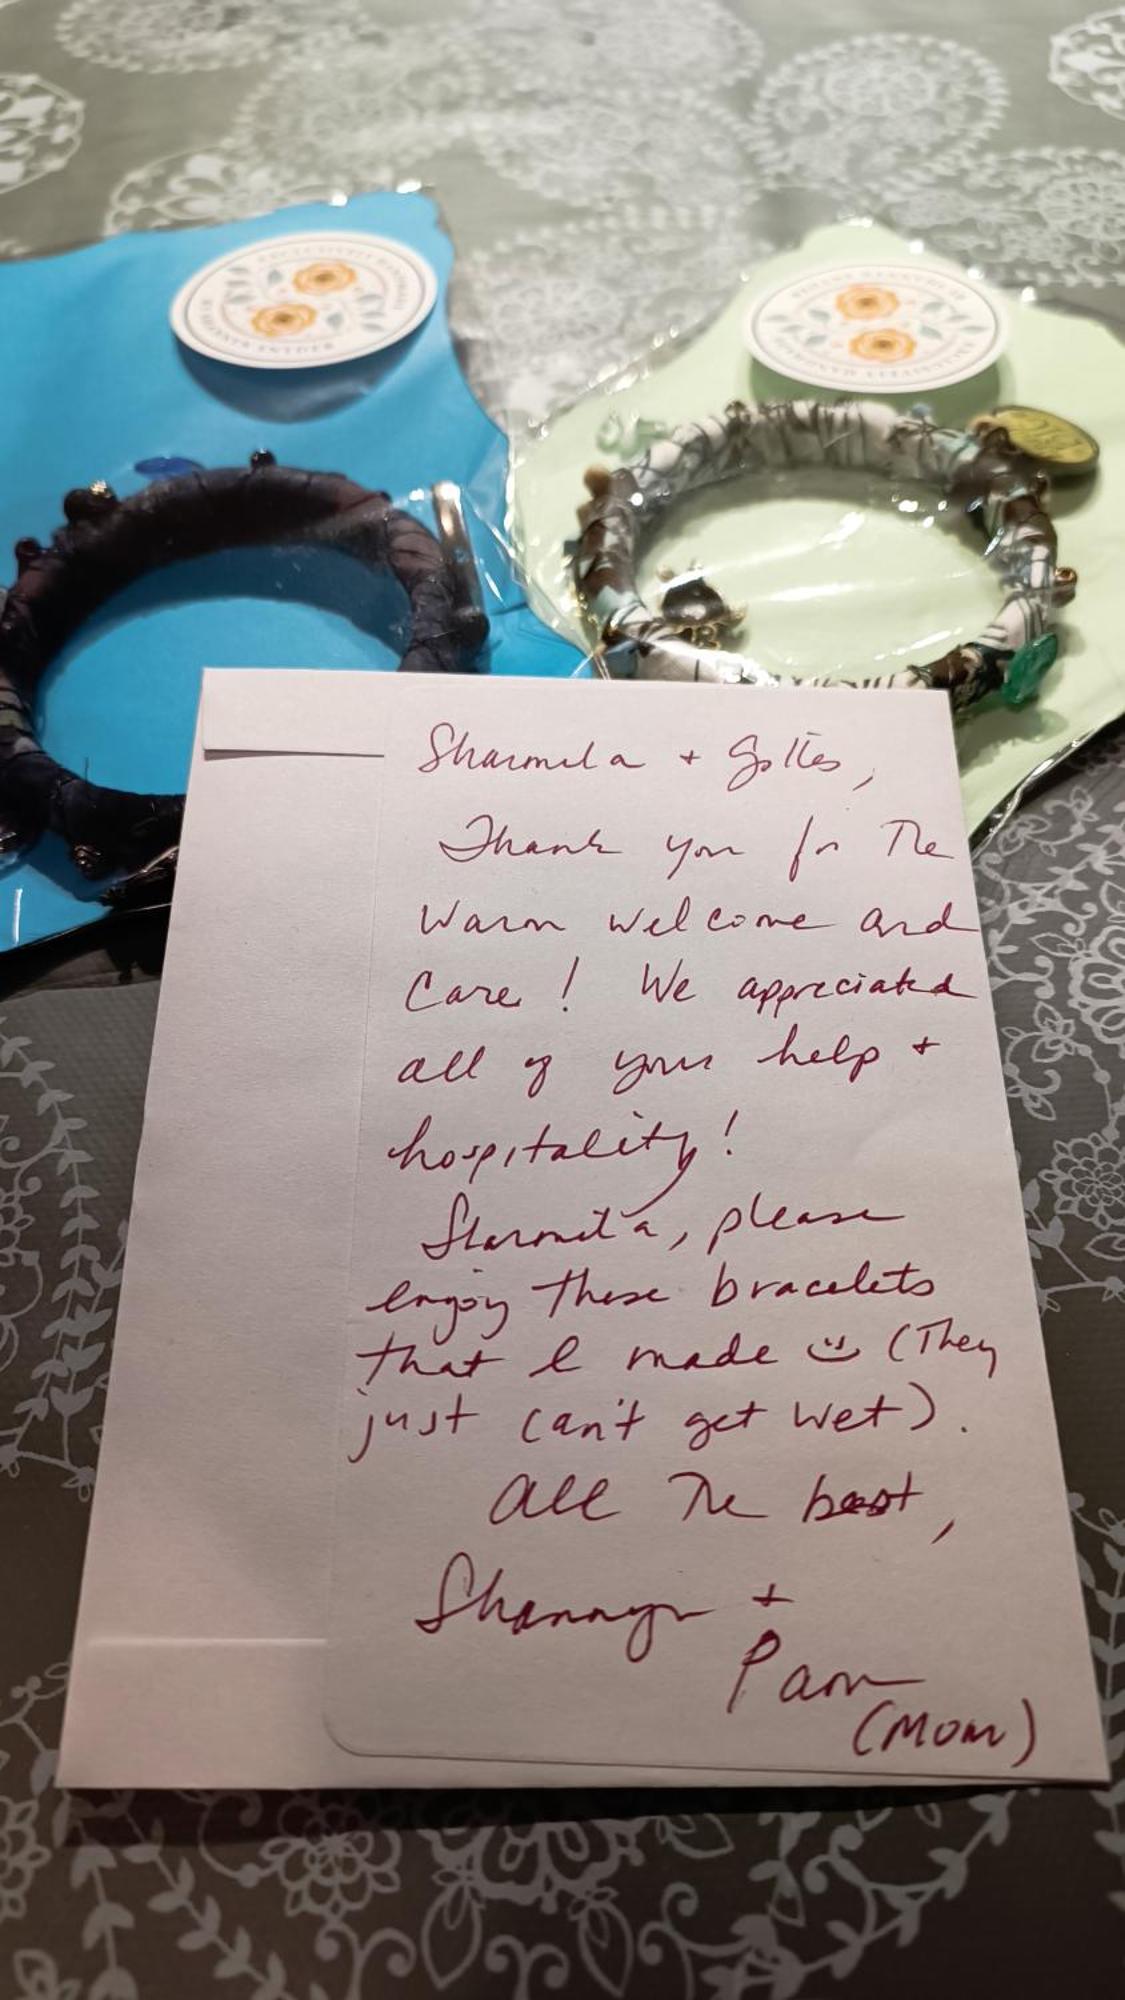 Sharmila + Gilles,
Thank you for The
warm welcome and
Care! We appreciated
all of your help +
hospitality!
Sharmila, please
enjoy these bracelets
that I made (They
just can't get wet).
All The best,
Shannyn +
Pam
(Mom)